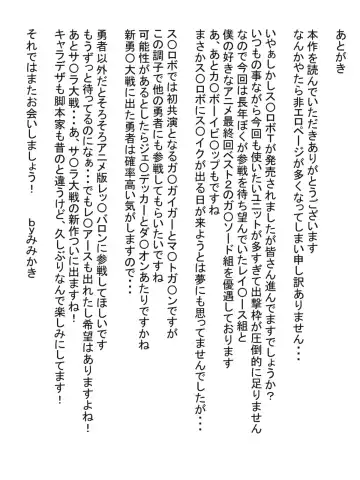 あとがき
本作を読んでいただきありがとうございます
なんかやたら非エロページが多くなってしまい申し訳ありません・・・
いやぁしかしス〇ロボTが発売されましたが皆さん進んでますでしょうか？
いつもの事ながら今回も使いたいユニットが多すぎて出撃枠が圧倒的に足りません
なので今回は長年ぼくが参戦を待ち望んでいたレイ〇ース組と
僕の好きなアニメ最終回ベスト2のガ〇ソード組を優遇しております
あ、あとカ〇ボーイビ〇ップもですね
まさかス〇ロボにス〇イクが出る日が来ようとは夢にも思ってませんでしたが・・・
ス〇ロボでは初共演となるガ〇ガイガーとマ〇トガ〇ンですが
この調子で他の勇者にも参戦してもらいたいですね
可能性があるとしたらジェ〇デッカーとダ〇オンあたりですかね
新勇〇大戦に出た勇者は確率高い気がしますので・・・
勇者以外だとそろそろアニメ版レッ〇バロンに参戦してほしいです
もうずっと待ってるのになぁ・・・でもレ〇アースも出れたし希望はありますよね！
あとサ〇ラ大戦・・・あ、サ〇ラ大戦の新作ついに出ますね！
キャラデザも脚本家も昔のと違うけど、久しぶりなんで楽しみにしてます！
それではまたお会いしましょう！　byみみかき